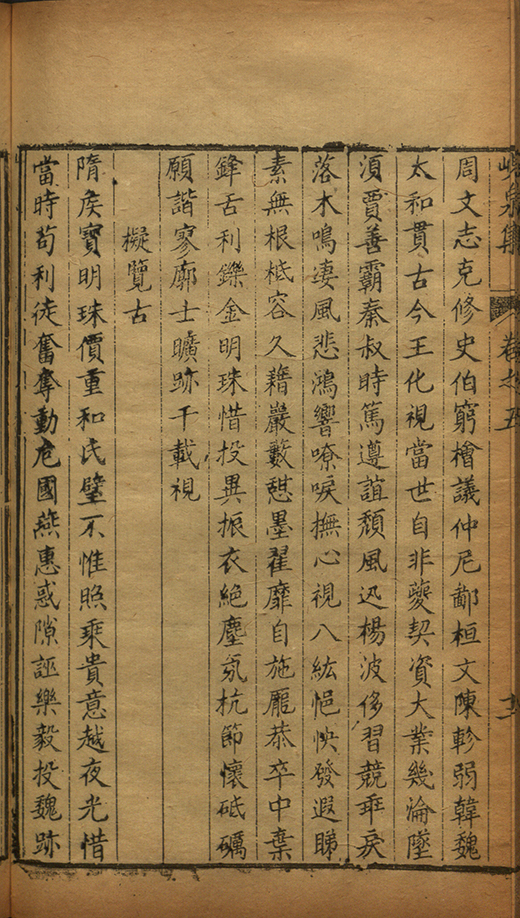 峴泉集 卷之五
周文志克修史伯窮檜議仲尼鄙桓文陳軫弱韓魏
太和貫古今王化視當世自非夔契資大業幾淪墜
須賈善霸秦叔時篤遵誼頹風迅楊波侈習競乖戾
落木鳴淒風悲鴻響嘹唳撫心視八紘悒怏發遐睇
素無根柢容久藉巖藪憇墨翟靡自施龐恭卒中棄
鋒舌利鑠金明珠惜投異振衣絶塵氛抗節懷砥礪
願諧寥廓士曠跡千載視
擬覽古
隋侯寶明珠價重和氏璧不惟照乘貴意越夜光惜
當時苟利徒奮奪動危國燕惠惑隙誣樂毅投魏跡